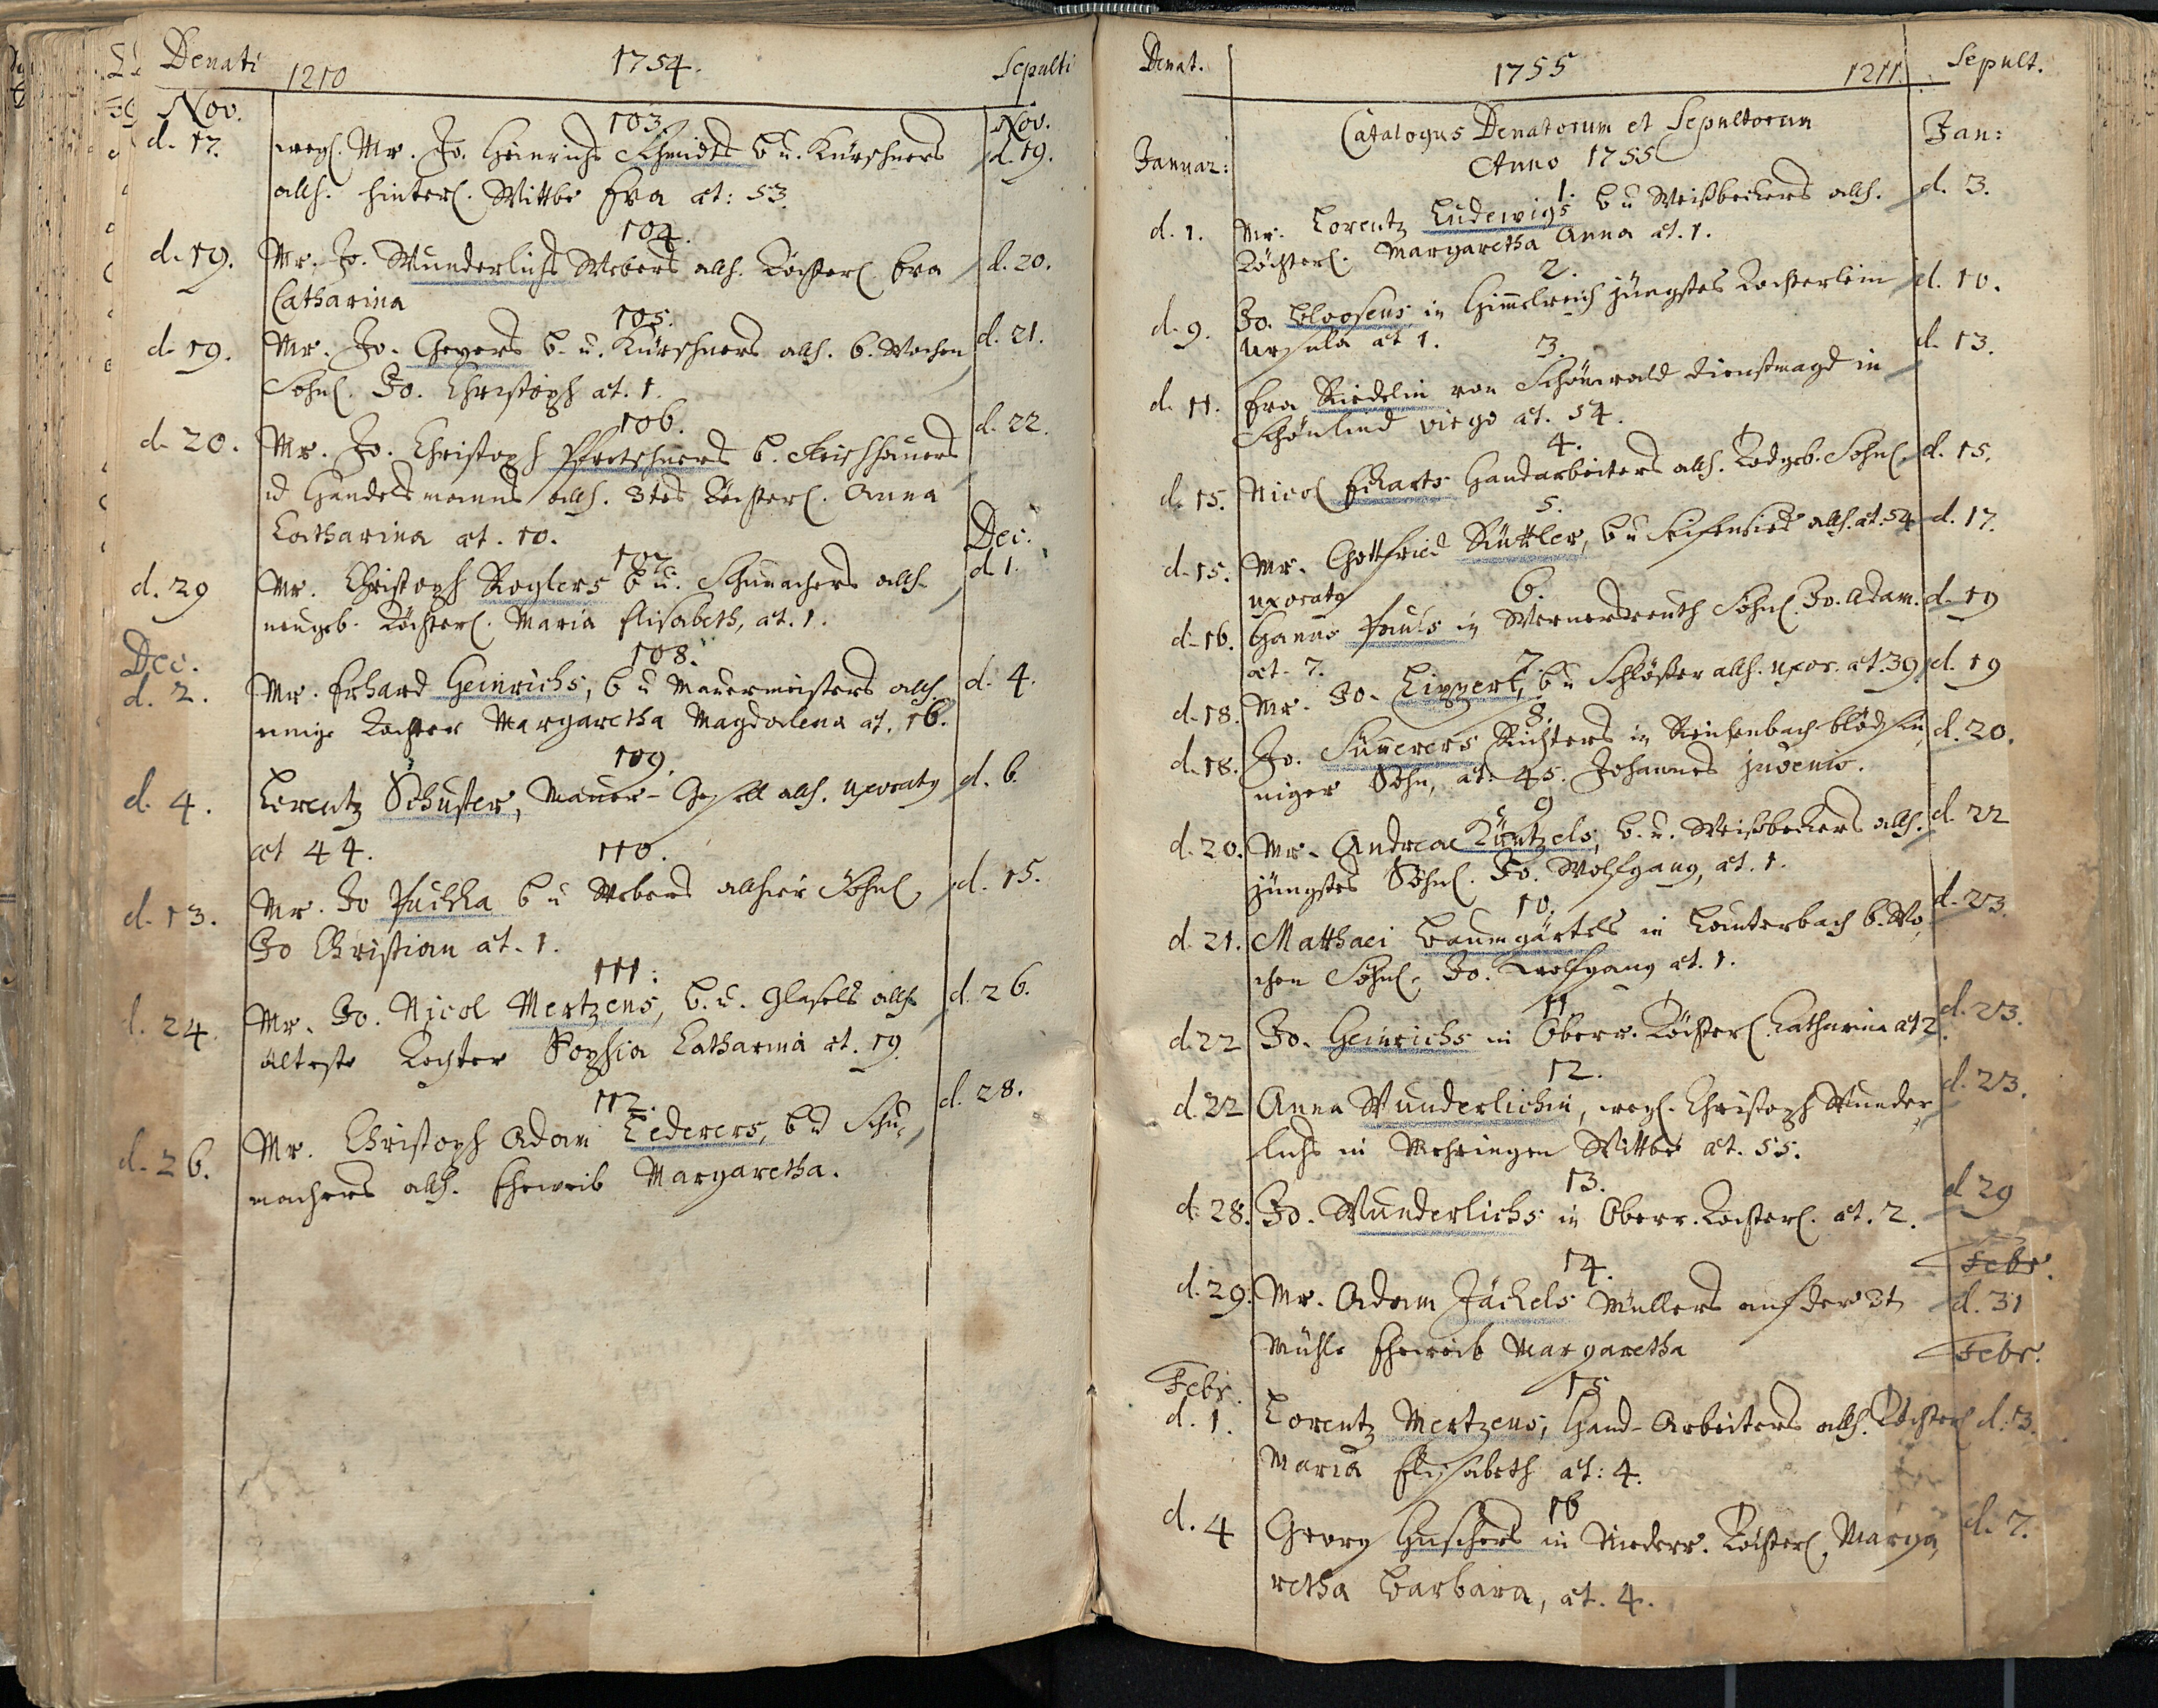 Denati 1210 1754. Sepulti
Nov. 103. Nov.
d. 17. wegl. Mr. Jo. Heinrichs Schmidts b u. Kürschners d. 19.
allh. hinterl. Wittbe Eva at: 53.
104.
d. 19. Mr. Jo. Wunderlichs Webers allh. Töchterl. Eva d. 20.
Catharina
105.
d. 19. Mr. Jo. Geyers b. u. Kürschners allh. 6. Wochen d. 21.
Söhnl. Jo. Christoph at. 1.
106.
d. 20. Mr. Jo. Christoph Pfretschners b. Fleischhauers d. 22.
u Handelsmanns allh. 3tes Töchterl. Anna
Catharina at. 10. Dec:
107.
d. 29 Mr. Christoph Roglers b u. Schumachers allh. d. 1.
neugeb. Töchterl. Maria Elisabeth, at. 1.
Dec. 108.
d. 2. Mr. Erhard Heinrichs, b u Mauermeisters allh. d. 4.
einige Tochter Margaretha Magdalena at. 16.
109.
d. 4. Lorentz Schuster, Mauer-Gesell allh. uxoratg d. 6.
at 44.
110.
d. 13. Mr. Jo Puchta b u Webers allhier Söhnl. d. 15.
Jo Christian at. 1.
111.
d. 24. Mr. Jo. Nicol Mertzens, b. u. allh. d. 26.
älteste Tochter Sophia Catharina at. 19.
112.
d. 26. Mr. Christoph Adam Lederers, b u Schu- d. 28.
machers allh. Eheweib Margaretha.
Denat. 1755 1211. Sepult.
Catalogus Denatorum et Sepultorum
Januar: Anno 1755 Jan:
1.
d. 1. Mr. Lorentz Ludewigs b u Weißbeckers allh. d. 3.
Töchterl. Margaretha Anna at. 1.
2.
d. 9. Jo. Ploosens in Himelreich jüngstes Töchterlein d. 10.
Ursula at 1.
3.
d. 11. Eva Riedelin von Schönwald Dienstmagd in d. 13.
Schönlind virgo at. 54.
4.
d. 15. Nicol Eckarts Handarbeiters allh. Todgeb. Söhnl. d. 15.
5.
d. 15. Mr. Gottfried Küttler, b u Seifensied allh. at. 54 d. 17.
uxoratg
6.
d. 16. Hanns Pauls in Wernersreuth Söhnl. Jo. Adam. d. 19
at. 7.
7.
d. 18. Mr. Jo. Lippert, b u Schlösser allh. uxor. at. 39. d. 19
8.
d. 18. Jo. Richters in Reichenbach blödsin d. 20.
niger Sohn, at. 45. Johannes juvenis.
9
d. 20. Mr. Andreae Küntzels, b. u. Weißbeckers allh. d. 22
jüngstes Söhnl. Jo. Wolfgang, at. 1.
10.
d. 21. Matthaei Baumgärtels in Lauterbach 6. Wo, d. 23.
chen Söhnl. Jo. Wolfgang at. 1.
11.
d. 22 Jo. Heinrichs in Oberr. Töchterl. Catharina at 2. d. 23.
12.
d. 22 Anna Wunderlichin, wegl. Christoph Wunder d. 23.
lichs in Mehringen Wittbe at. 55.
13.
d. 28. Jo. Wunderlichs in Oberr. Töchterl. at. 2. d 29
14. Febr.
d. 29. Mr. Adam Jäckels Müllers auf der d. 31
Mühle Eheweib Margaretha Febr.
Febr. 15
d. 1. Lorentz Mertzens, Hand-Arbeiters allh. Töchterl d. 3.
Maria Elisabeth at: 4.
16
d. 4 Georg Huschers in Niederr. Töchterl. Marga, d. 7.
retha Barbara, at. 4.